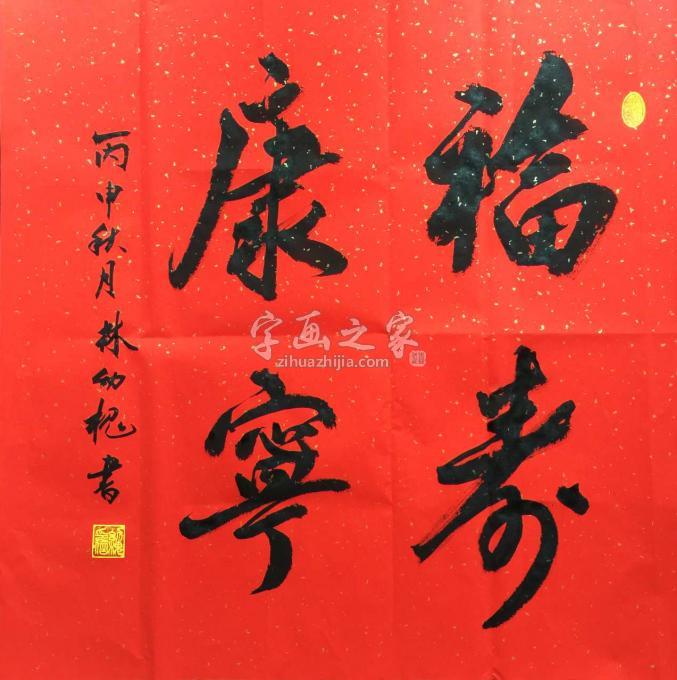 福寿
康寧
丙申秋月林幼槐書
字画之家
zihuazhijia.com